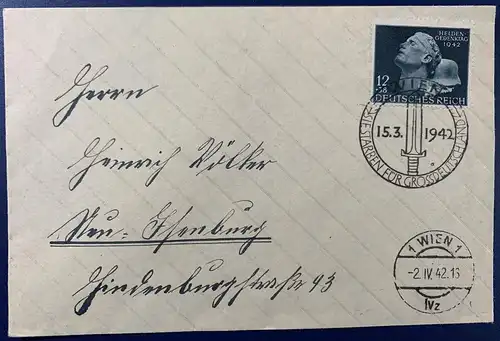 HELDEN-
GEDENKTAG
1942
12
+38
DEUTSCHES REICH
WIEN
15.3. 1942
SIE STARBEN FÜR GROSSDEUTSCHLAND
Herrn
Heinrich Völker
Neu-Isenburg
Hindenburgstraße 43
1 WIEN 1
-2.IV.42.16
IVz